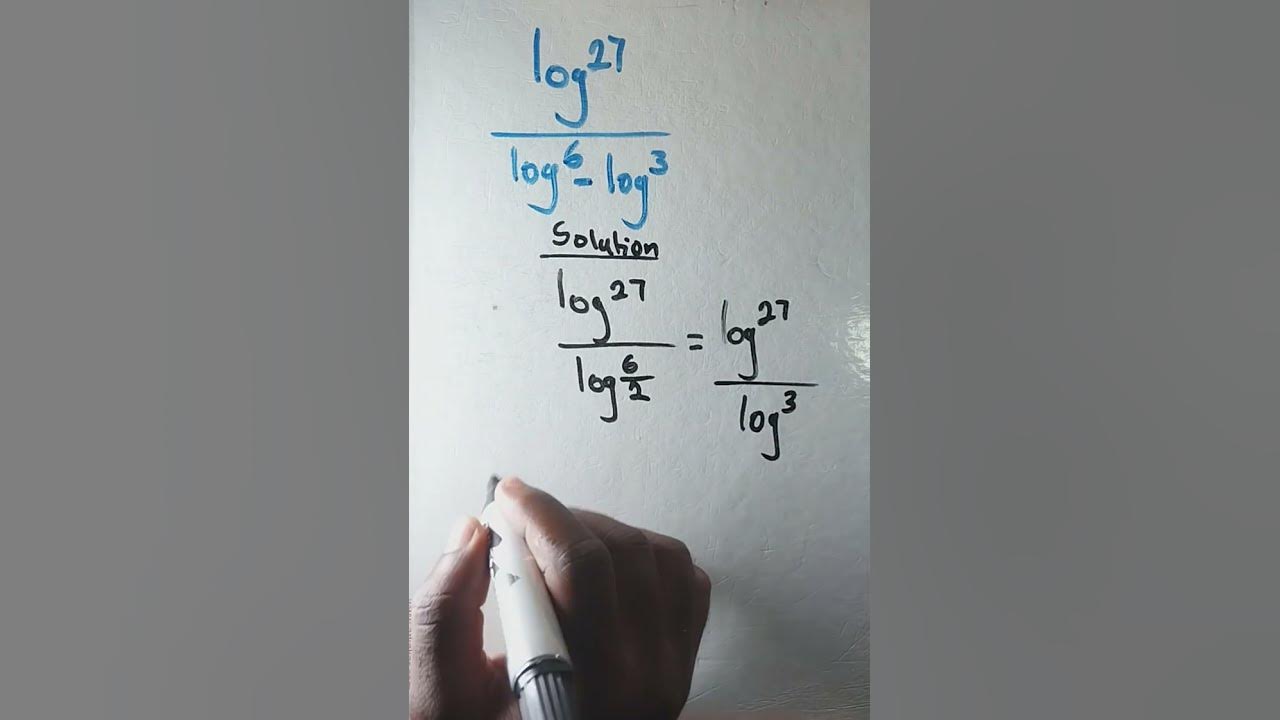 log 27
log 6 - log 3
Solution
log 27
log 6/2
= log 27
log 3